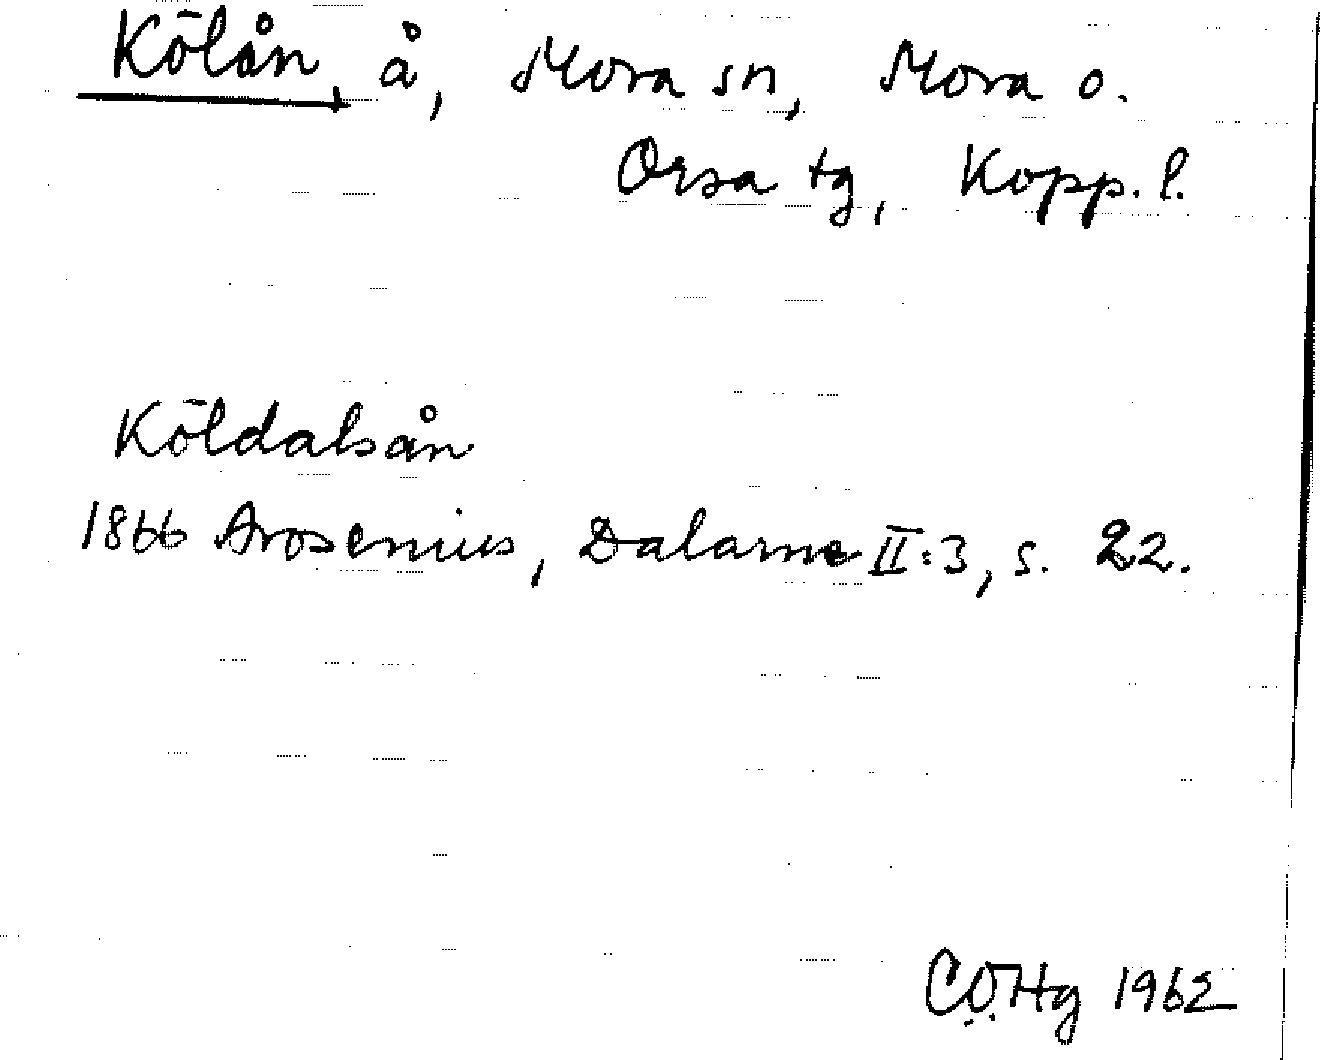 Kölån, å, Mora sn, Mora o.
Orsa tg, Kopp. l.
Köldalsån
1866 Arosenius, Dalarne II:3, s. 22.
CÖHg 1962